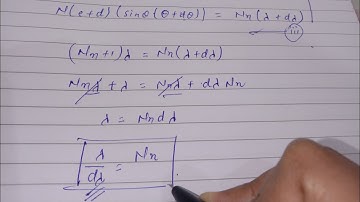 N(e+d)(sinθ(θ+dθ)) = Nn(λ+dλ) (iii)
(Nn+1)λ = Nn(λ+dλ)
Nnλ + λ = Nnλ + dλ Nn
λ = Nn dλ
λ/dλ = Nn